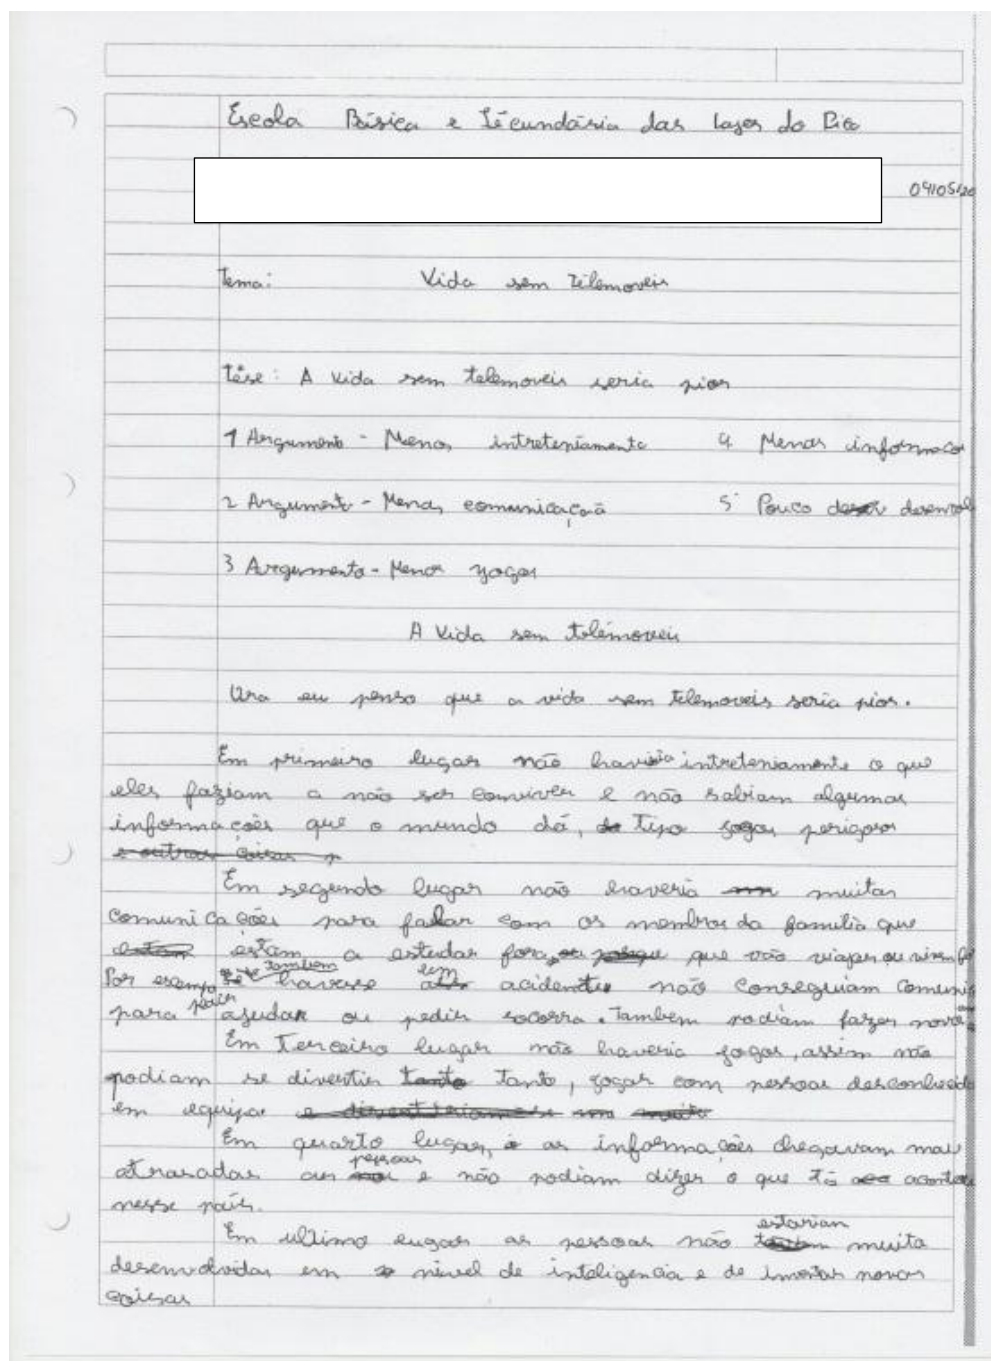 Escola Básica e Sécundária das Lajes do Pico
09/05/20
Tema: Vida sem telemoveis
Tése: A vida sem telemoveis seria pior
1 Argumento - Menos intreteniamento 4 Menos informaco
2 Argumento - Menos comunicaçoã 5 Pouco desenvol
3 Argumento - Menos jogos
A vida sem telemoveis
Ora eu penso que a vida sem telemoveis seria pior.
Em primeiro lugar não haveria intreteniamente o que
eles faziam a não ser conviver e não sabiam algumas
informações que o mundo dá, tipo jogos perigosos
e outras coisas
Em segundo lugar não haveria muitas
comunicações para falar com os membros da familia que
estam a estudar fora, que vão viajar ou
Por exempo tambem havesse um acidente não conseguiam comuni
para ajudar ou pedir socorro. Tambem podiam fazer novo
Em Terceiro lugar não haveria jogos, assim não
podiam se divertir tanto tanto, jogar com pessoas desconhecid
em equipa
Em quarto lugar, as informações chegavam mai
atrasadas aus pessoas e não podiam dizer o que tá aconte
nesse país.
Em ultimo lugar as pessoas não estarian muita
desenvolvidas em nivel de inteligencia e de inventar novas
coisas